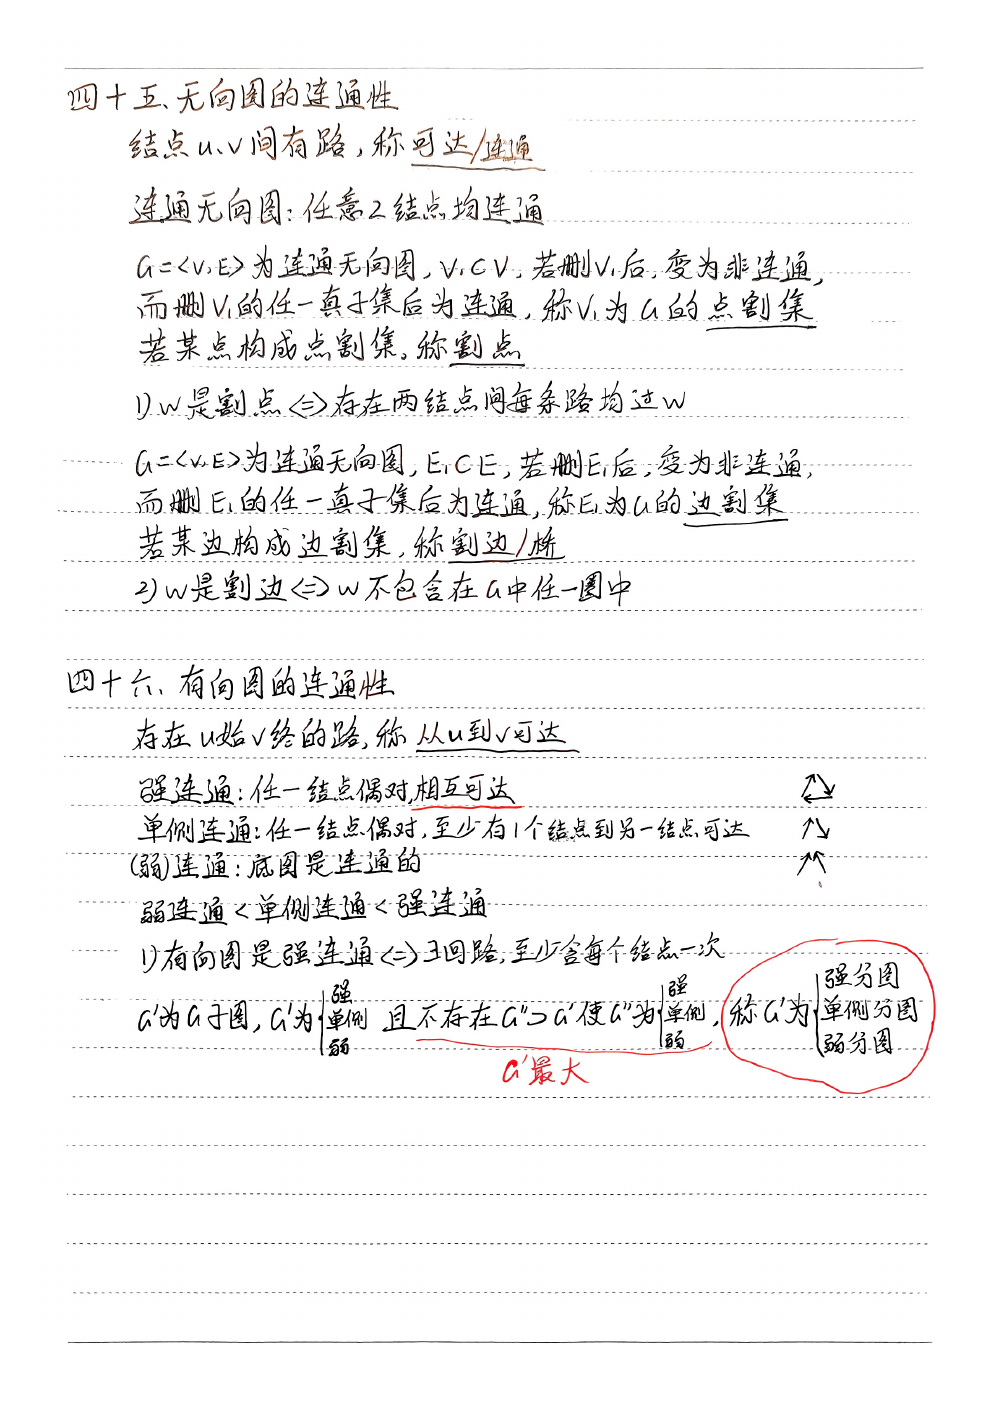 四十五、无向图的连通性
结点u、v间有路，称可达/连通
连通无向图：任意2结点均连通
G=<V,E>为连通无向图，V₁⊂V，若删V₁后，变为非连通，
而删V₁的任一真子集后为连通，称V₁为G的点割集
若某点构成点割集，称割点
1) w是割点<=>存在两结点间每条路均过w
G=<V,E>为连通无向图，E₁⊂E，若删E₁后，变为非连通，
而删E₁的任一真子集后为连通，称E₁为G的边割集
若某边构成边割集，称割边/桥
2) w是割边<=>w不包含在G中任一圈中
四十六、有向图的连通性
存在u始v终的路，称从u到v可达
强连通：任一结点偶对，相互可达
单侧连通：任一结点偶对，至少有1个结点到另一结点可达
(弱)连通：底图是连通的
弱连通<单侧连通<强连通
1)有向图是强连通<=>∃回路，至少含每个结点一次
G'为G子图，G'为{强 单侧 弱 且不存在G''⊃G'使G''为{强 单侧 弱，称G'为{强分图 单侧分图 弱分图
G'最大